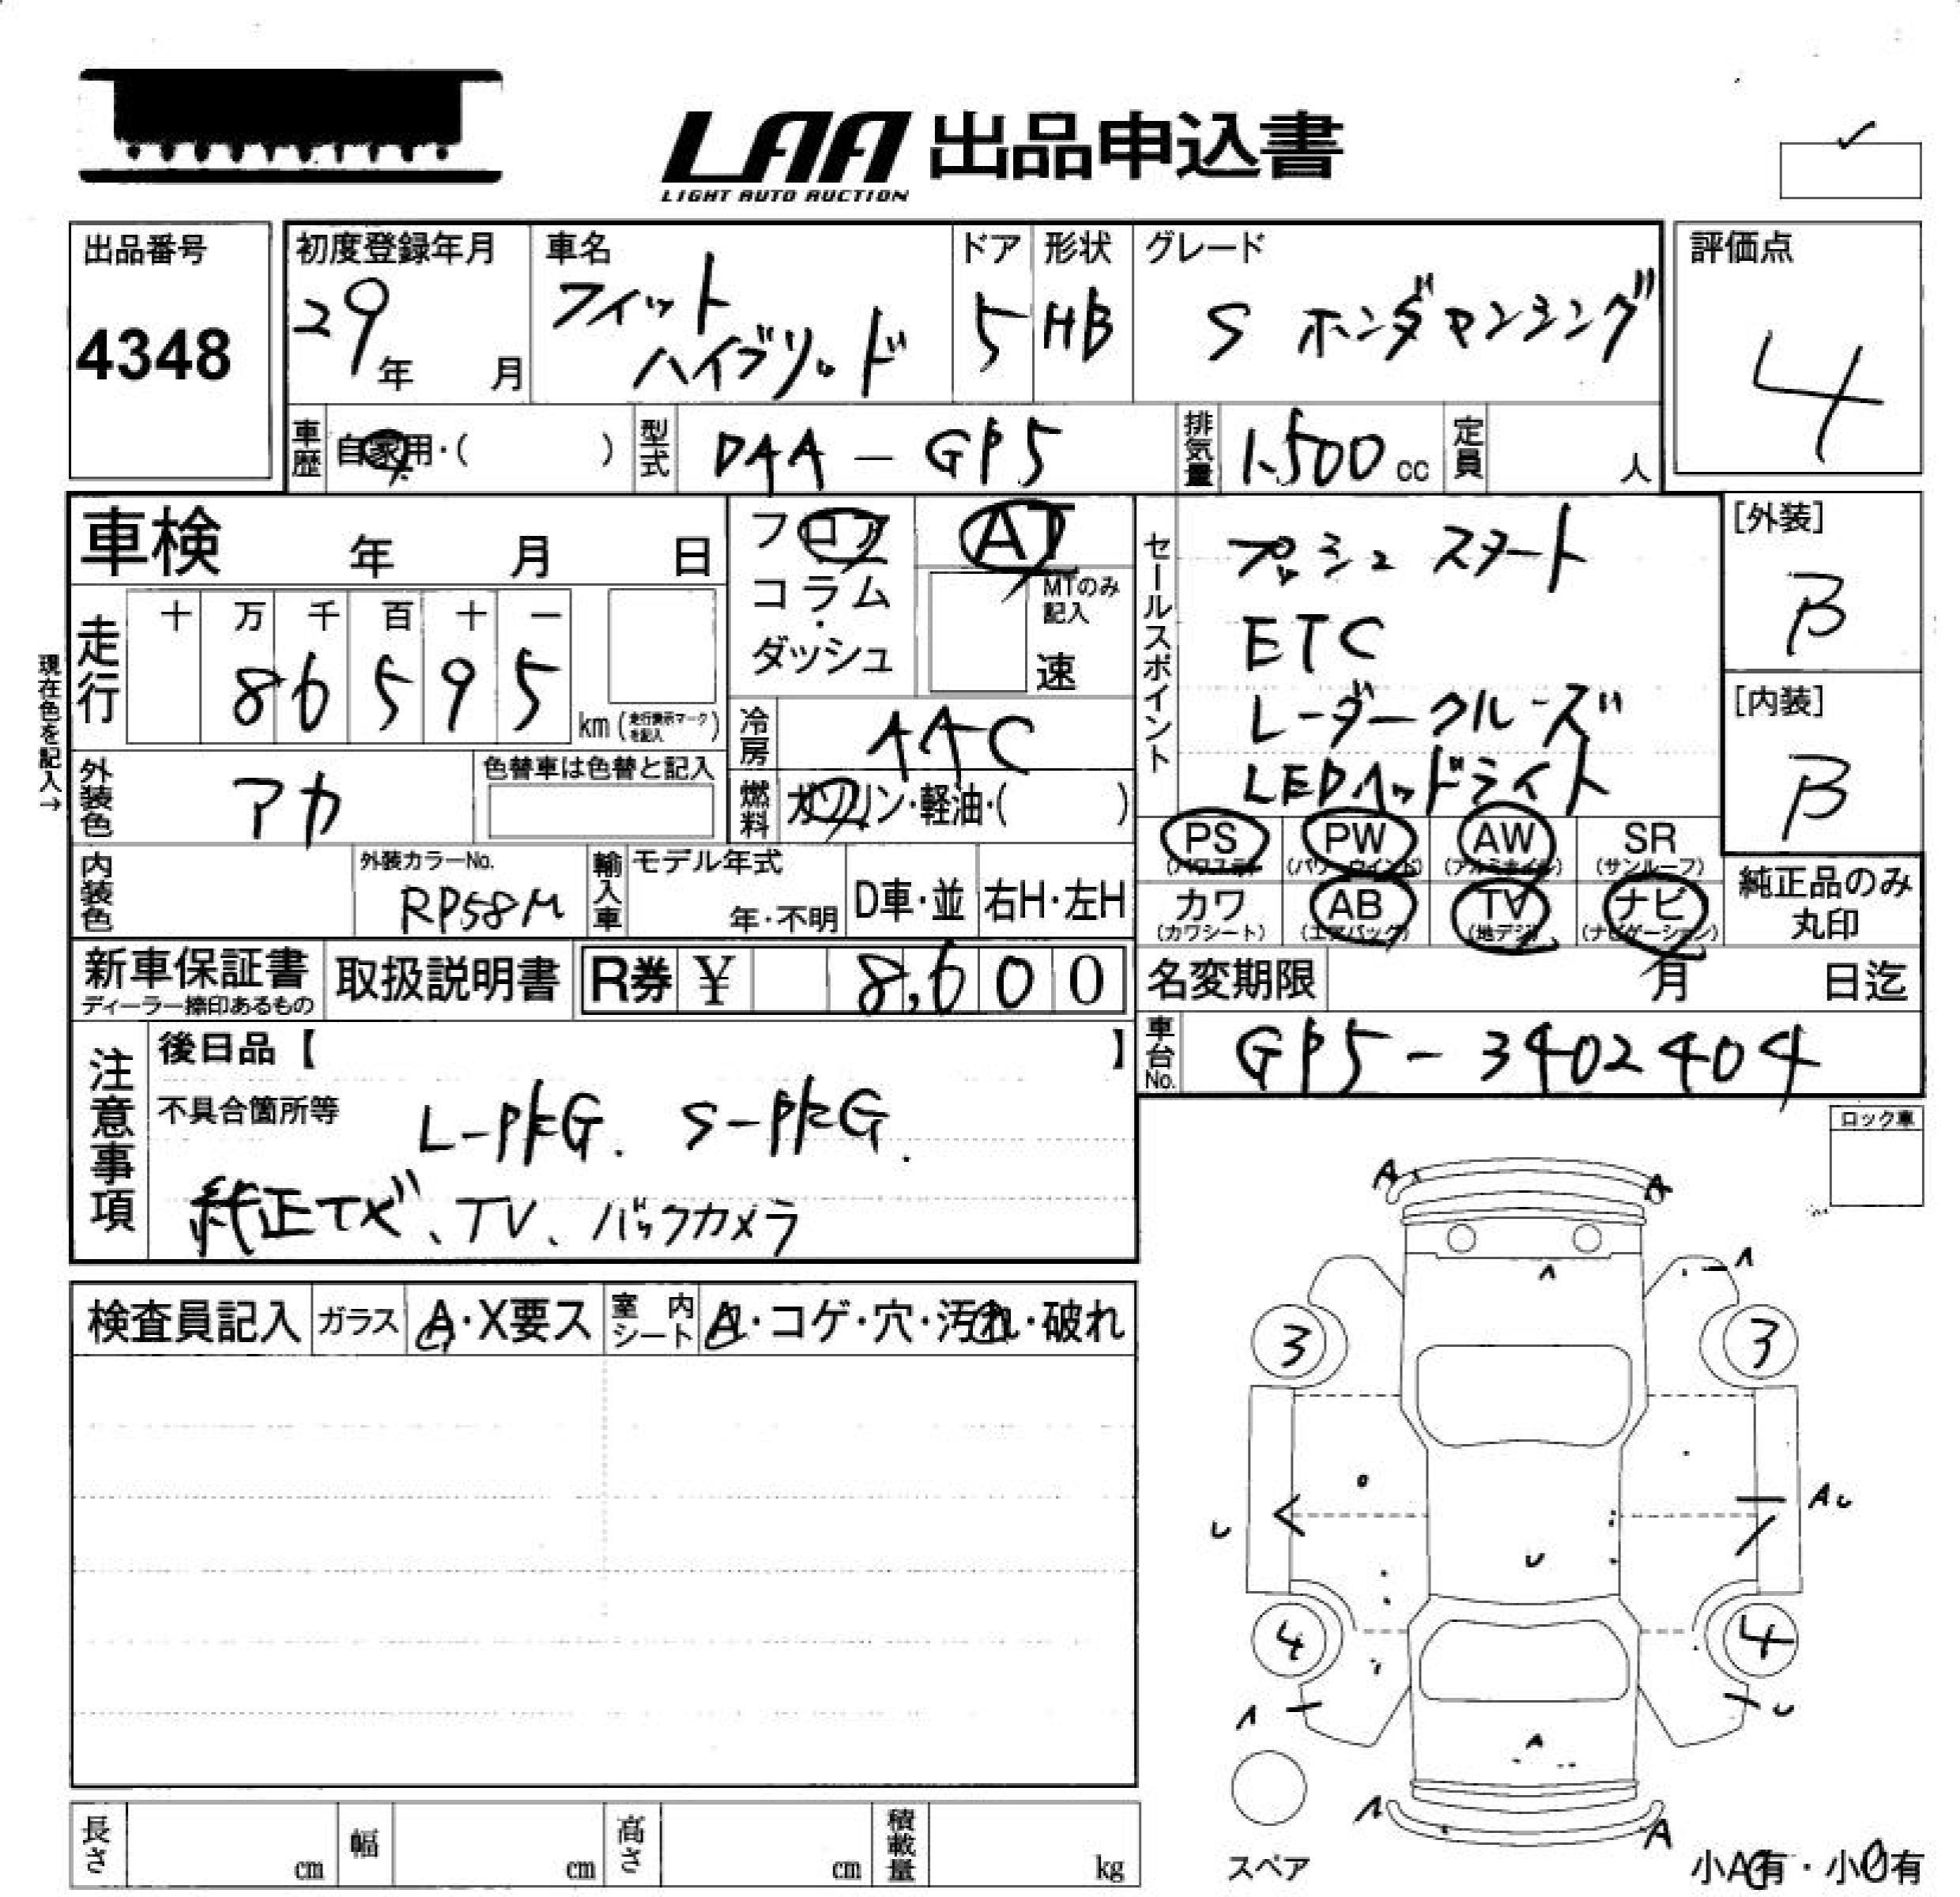 LAA 出品申込書
LIGHT AUTO AUCTION
出品番号
4348
初度登録年月
29年 月
車名
フィット
ハイブリッド
ドア
5
形状
HB
グレード
S ホンダセンシング
評価点
4
車歴 自家用・( )
型式 DAA-GP5
排気量 1.500cc
定員 人
車検 年 月 日
フロア
コラム
・
ダッシュ
AT
MTのみ
記入
速
セールスポイント
プッシュスタート
ETC
レーダークルーズ
LEDヘッドライト
[外装]
B
[内装]
B
現在色を記入→
走行
十 万 千 百 十 一
8 6 5 9 5
km(走行表示マークを記入)
冷房 AAC
燃料 ガソリン・軽油・( )
外装色 アカ
色替車は色替と記入
内装色
外装カラーNo.
RP58M
輸入車
モデル年式
年・不明
D車・並
右H・左H
PS (パワステ)
PW (パワーウインド)
AW (アルミホイル)
SR (サンルーフ)
カワ (カワシート)
AB (エアバック)
TV (地デジ)
ナビ (ナビゲーション)
純正品のみ
丸印
新車保証書
ディーラー捺印あるもの
取扱説明書
R券 ¥ 8,600
名変期限 月 日迄
車台No. GP5-3402404
注意事項
後日品【 】
不具合箇所等
純正ナビ、TV、バックカメラ
ロック車
検査員記入
ガラス A・X要ス
室内シート
・コゲ・穴・汚れ・破れ
A A
A
A
3 3
U
A U
U
4 4
A
U
A
A
A
スペア
小A有・小U有
長さ cm
幅 cm
高さ cm
積載量 kg